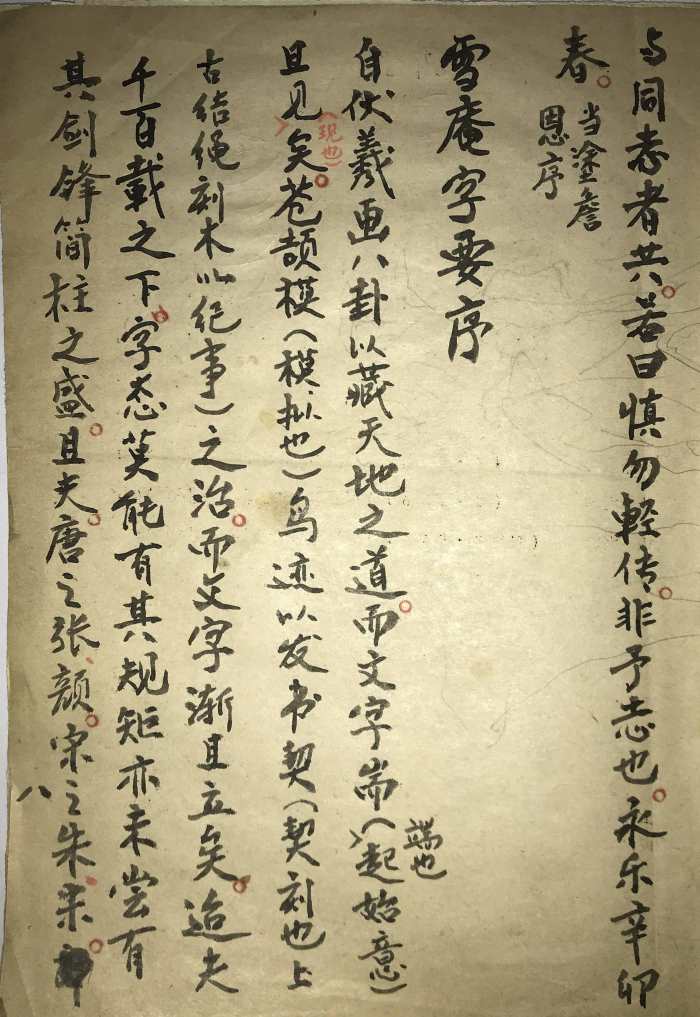 与同志者共。若曰慎勿輕传。非予志也。永乐辛卯
春。当塗詹
恩序
雪庵字要序
自伏羲画八卦以藏天地之道。而文字耑(起始意)
端也
且见矣。苍颉模(模拟也)鸟迹以发书契(契刻也上
(现也)
古结绳刻木以纪事)之治。而文字渐且立矣。迨夫
千百载之下。字态莫能有其规矩亦未尝有
其剑锋简柱之盛。且夫。唐之张、颜。宋之朱、宋。
八